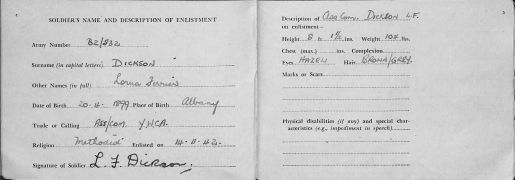 4
SOLDIER'S NAME AND DESCRIPTION OF ENLISTMENT
Army Number B2/832
Surname (in capital letters) DICKSON
Other Names (in full) Lorna
Date of Birth 20.4.1899 Place of Birth Albany
Trade or Calling Ass/Com. Y.W.C.A.
Religion Methodist Enlisted on 14.11.42.
Signature of Soldier L. F. Dickson.
5
Description of Ass Com. DICKSON L.F.
on enlistment—
Height 5 ft. 1½ ins. Weight 104 lbs.
Chest (max.) ins. Complexion
Eyes HAZEL Hair BROWN/GREY.
Marks or Scars
Physical disabilities (if any) and special char-
acteristics (e.g., impediment in speech)